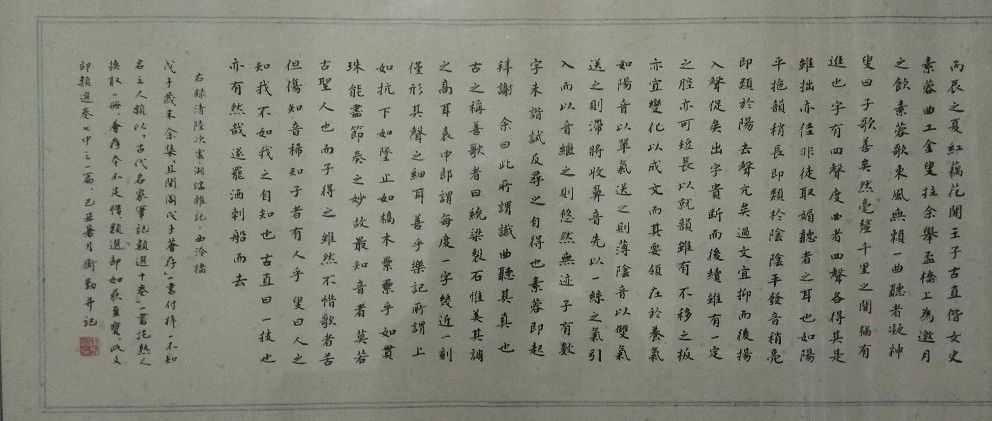 丙辰之夏紅藕花開王子古直偕女史
素蓉曲工金叟拉余舉盃橋上為邀月
之飲素蓉歌東風無賴一曲聽者凝神
叟曰子歌善矣然毫釐千里之間猶有
進也字有四聲度曲者四聲各得其是
雖拙亦佳非徒取媚聽者之耳也如陽
平拖韻稍長即類於陰陰平發音稍亮
即類於陽去聲亢矣過文宜抑而後揚
入聲促矣出字貴斷而後續雖有一定
之腔亦可短長以就韻雖有不移之板
亦宜變化以成文而其要領在於養氣
如陽音以單氣送之則薄陰音以雙氣
送之則滯將收鼻音先以一絲之氣引
入而以音繼之則悠然無迹子有數
字未諧試反尋之自得也素蓉即起
拜謝 余曰此所謂識曲聽其真也
古之稱善歌者曰繞梁裂石惟美其調
之高耳袁中郎謂每度一字幾近一刻
僅形其聲之細耳善乎樂記所謂上
如抗下如墜止如槁木纍纍乎如貫
珠能盡節奏之妙故最知音者莫若
古聖人也而子得之雖然不惜歌者苦
但傷知音稀知子者有人乎叟曰人之
知我不如我之自知也古直曰一技也
亦有然哉遂罷酒刺船而去
右錄清陸次雲湖壖雜記西泠橋
戊子歲末余集且閒閣戊子箸存一書付梓不知
名之人類以古代名家筆記類選十卷一書托熟人
換取一冊
即類選卷七中之一篇己丑暑月衛勤并記